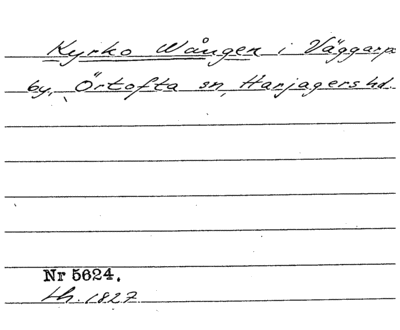 Kyrko Wången i Väggarps
by, Örtofta sn, Harjagers hd.
Nr 5624.
Lh. 1827